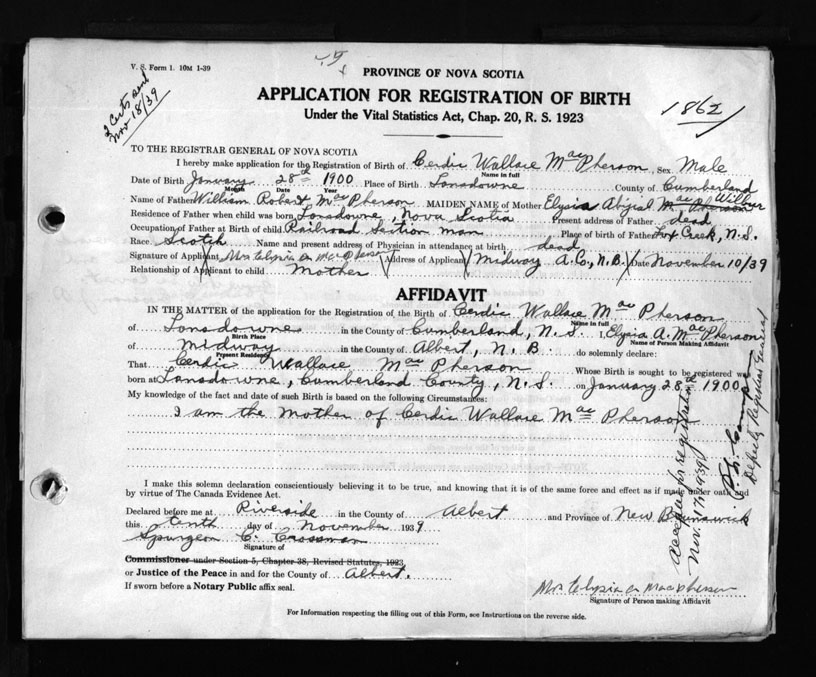 V. S. Form 1. 10M 1-39
2 Certs and
Nov 18/39
PROVINCE OF NOVA SCOTIA
APPLICATION FOR REGISTRATION OF BIRTH
Under the Vital Statistics Act, Chap. 20, R. S. 1923
1862
TO THE REGISTRAR GENERAL OF NOVA SCOTIA
I hereby make application for the Registration of Birth of Cerdic Wallace MacPherson, Sex Male
Name in full
Date of Birth January 28th 1900 Place of Birth Lansdowne County of Cumberland
Month Date Year
Name of Father William Robert MacPherson MAIDEN NAME of Mother Elysia Abigial MacPherson Wilbur
Residence of Father when child was born Lansdowne, Nova Scotia Present address of Father dead
Occupation of Father at Birth of child Railroad Section man Place of birth of Father Fox Creek, N.S.
Race Scotch Name and present address of Physician in attendance at birth dead
Signature of Applicant Mrs Elysia A MacPherson Address of Applicant Midway A.Co, N.B. Date November 10/39
Relationship of Applicant to child Mother
AFFIDAVIT
IN THE MATTER of the application for the Registration of the Birth of Cerdic Wallace MacPherson
Name in full
of Lansdowne in the County of Cumberland, N.S. I, Elysia A. MacPherson
Birth Place Name of Person Making Affidavit
of Midway in the County of Albert, N.B. do solemnly declare:
Present Residence
That Cerdic Wallace MacPherson Whose Birth is sought to be registered was
born at Lansdowne, Cumberland County, N.S. on January 28th 1900
My knowledge of the fact and date of such Birth is based on the following Circumstances:
I am the Mother of Cerdic Wallace MacPherson
I make this solemn declaration conscientiously believing it to be true, and knowing that it is of the same force and effect as if made under oath and
by virtue of The Canada Evidence Act.
Declared before me at Riverside in the County of Albert and Province of New Brunswick
this tenth day of November 1939
Spurgeon C. Crossman
Signature of
Commissioner under Section 5, Chapter 38, Revised Statutes, 1923,
or Justice of the Peace in and for the County of Albert.
If sworn before a Notary Public affix seal.
Mrs Elysia A MacPherson
Signature of Person making Affidavit
For Information respecting the filling out of this Form, see Instructions on the reverse side.
Accepted for registration
Nov. 17th 1939
Deputy Registrar General